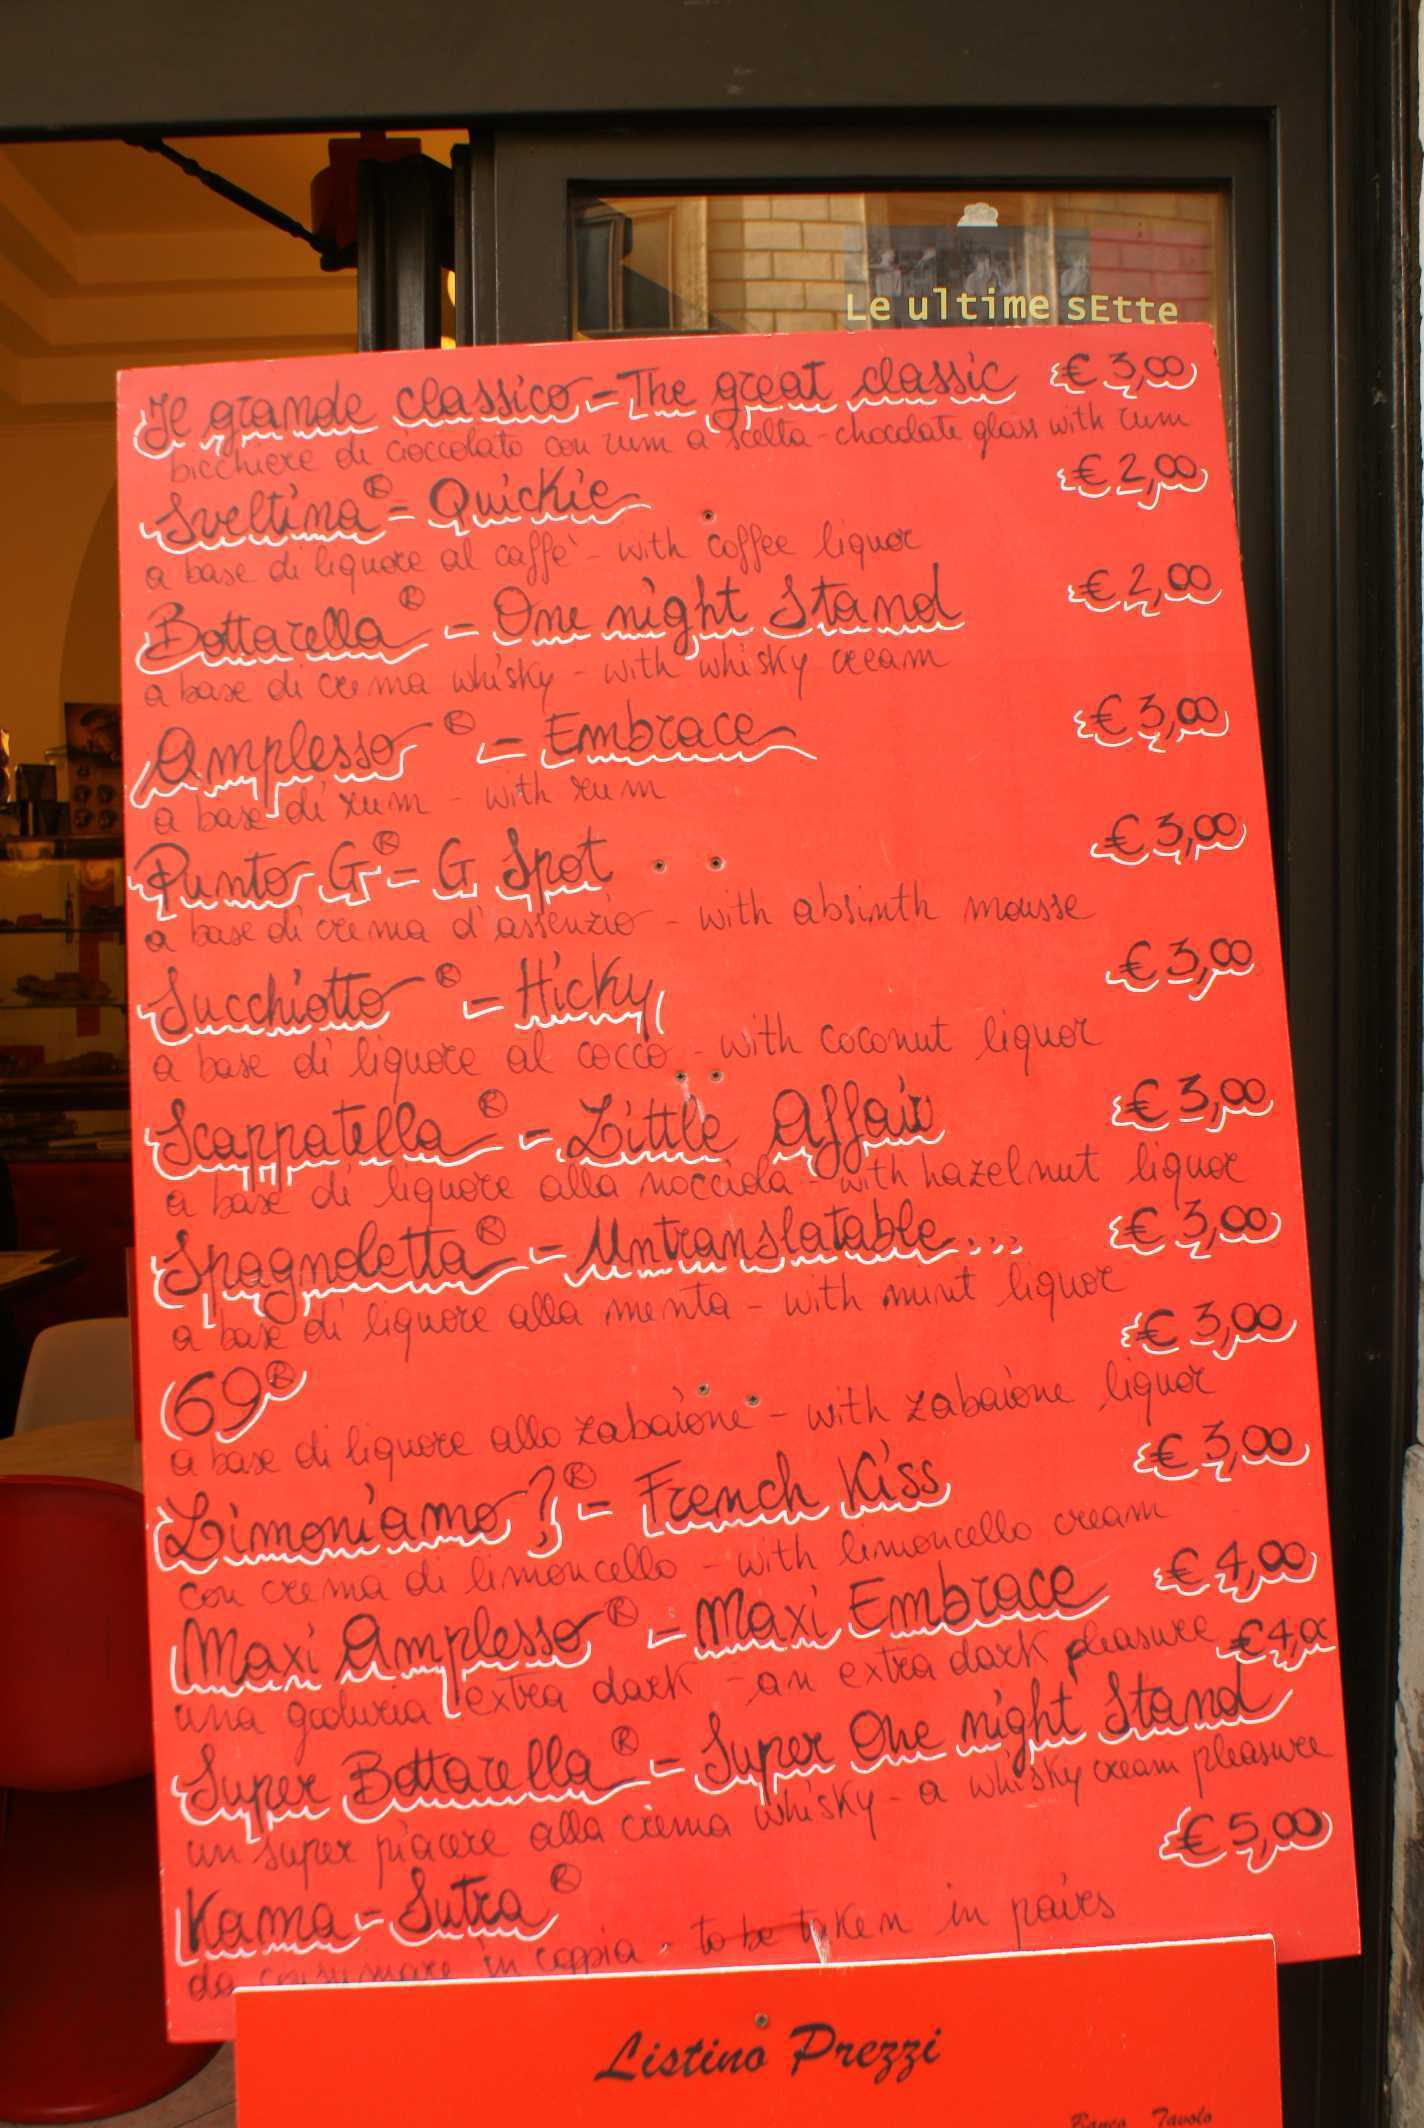 Le ultime sEtte
Il grande classico - The great classic € 3,00
bicchiere di cioccolato con rum a scelta - chocolate glass with rum
Sveltina® - Quickie € 2,00
a base di liquore al caffè - with coffee liquor
Bottarella® - One night Stand € 2,00
a base di crema whisky - with whisky cream
Amplesso® - Embrace € 3,00
a base di rum - with rum
Punto G® - G Spot € 3,00
a base di crema d'assenzio - with absinth mousse
Succhiotto® - Hicky € 3,00
a base di liquore al cocco - with coconut liquor
Scappatella® - Little Affair € 3,00
a base di liquore alla nocciola - with hazelnut liquor
Spagnoletta® - Untranslatable... € 3,00
a base di liquore alla menta - with mint liquor
69® € 3,00
a base di liquore allo zabaione - with zabaione liquor
Limoniamo?® - French Kiss € 3,00
con crema di limoncello - with limoncello cream
Maxi Amplesso® - Maxi Embrace € 4,00
una goduria extra dark - an extra dark pleasure
Super Bottarella® - Super One night Stand € 4,00
un super piacere alla crema whisky - a whisky cream pleasure
Kama-Sutra® € 5,00
da consumare in coppia - to be taken in pairs
Listino Prezzi
Banco Tavolo